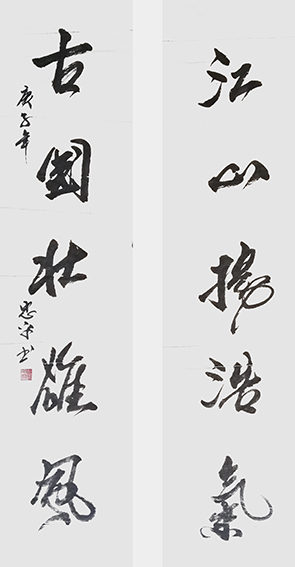 江山揚浩氣
古國壯雄風
庚子年
忠平书